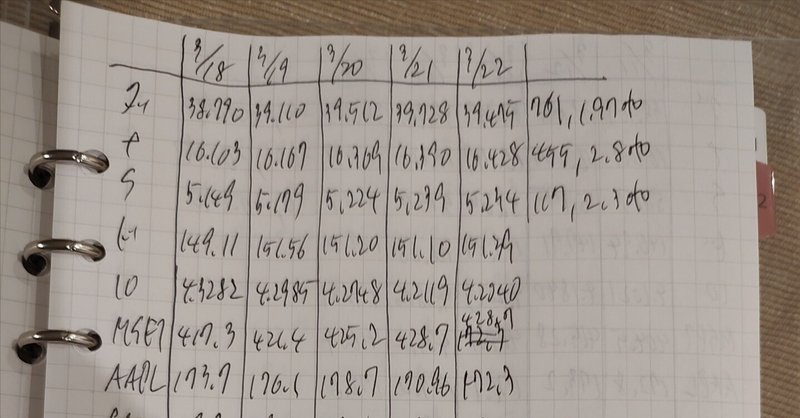 3/18 3/19 3/20 3/21 3/22
38.790 39.110 39.512 39.728 39.475 761, 1.97%
16.103 16.167 16.369 16.390 16.428 455, 2.8%
S 5.149 5.179 5,224 5,239 5.234 117, 2.3%
149.11 151.56 151.20 151.10 151.39
10 4.3282 4.2985 4.2748 4.2119 4.2040
MSFT 417.3 421.4 425.2 428.7 428.7
AAPL 173.7 176.1 178.7 170.96 172.3